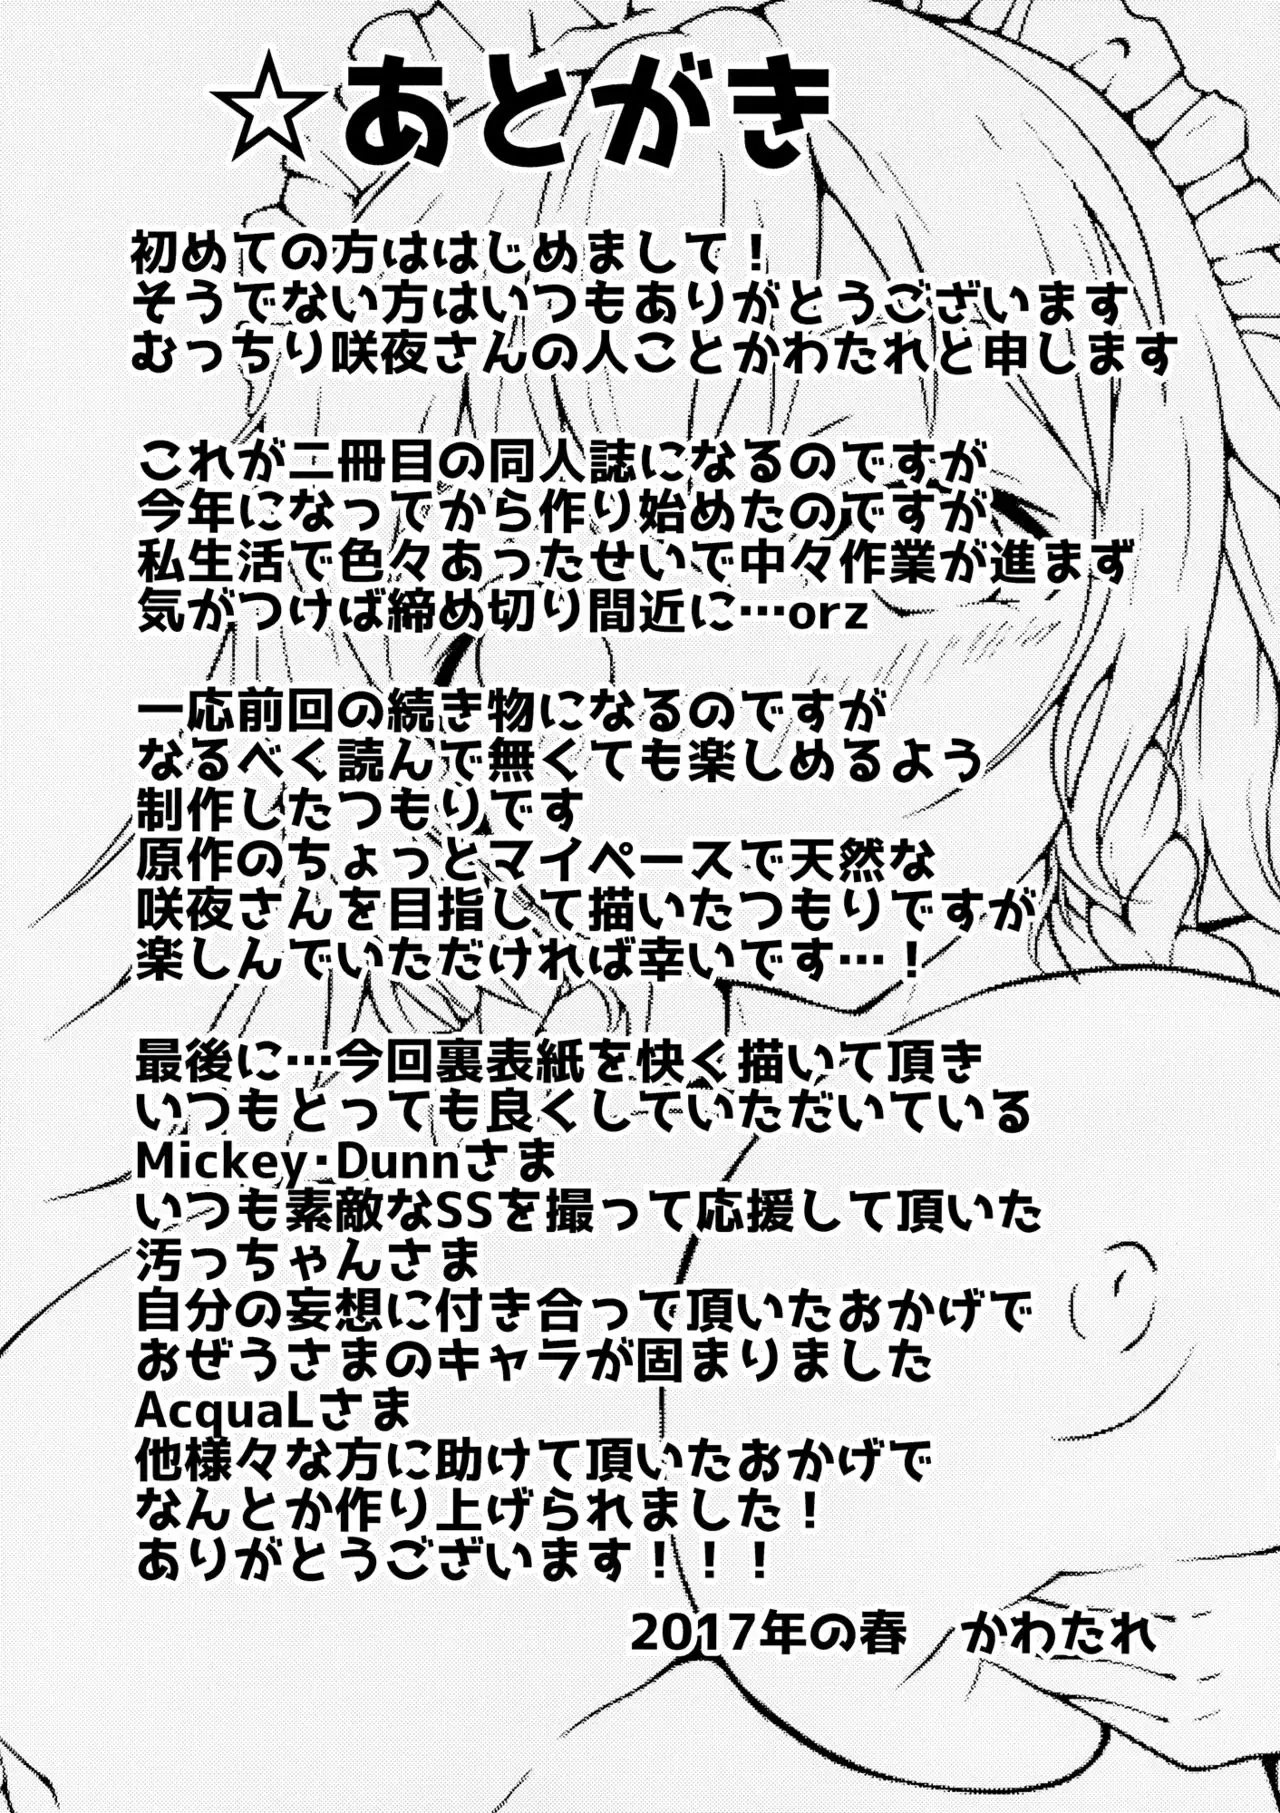 ☆あとがき
初めての方ははじめまして！
そうでない方はいつもありがとうございます
むっちり咲夜さんの人ことかわたれと申します
これが二冊目の同人誌になるのですが
今年になってから作り始めたのですが
私生活で色々あったせいで中々作業が進まず
気がつけば締め切り間近に…orz
一応前回の続き物になるのですが
なるべく読んで無くても楽しめるよう
制作したつもりです
原作のちょっとマイペースで天然な
咲夜さんを目指して描いたつもりですが
楽しんでいただければ幸いです…！
最後に…今回裏表紙を快く描いて頂き
いつもとっても良くしていただいている
Mickey･Dunnさま
いつも素敵なSSを撮って応援して頂いた
汚っちゃんさま
自分の妄想に付き合って頂いたおかげで
おぜうさまのキャラが固まりました
AcquaLさま
他様々な方に助けて頂いたおかげで
なんとか作り上げられました！
ありがとうございます！！！
2017年の春　かわたれ